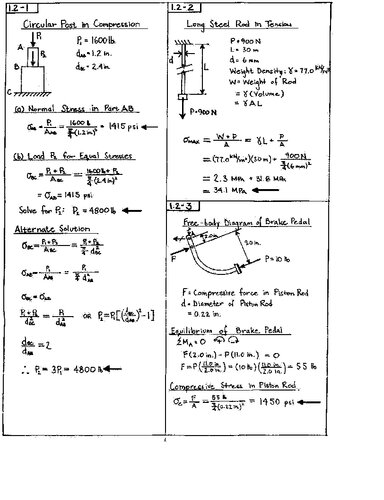 1.2-1
Circular Post in Compression
P₁
P₁ = 1600 lb.
d_AB = 1.2 in.
d_BC = 2.4 in.
A
P₂
B
C
(a) Normal Stress in Part AB
σ_AB = P₁/A_AB = 1600 lb/(π/4 (1.2 in.)²) = 1415 psi
(b) Load P₂ for Equal Stresses
σ_BC = (P₁ + P₂)/A_BC = (1600 lb + P₂)/(π/4 (2.4 in.)²)
= σ_AB = 1415 psi
Solve for P₂: P₂ = 4800 lb
Alternate Solution
σ_BC = (P₁ + P₂)/A_BC = (P₁ + P₂)/(π/4 d²_BC)
σ_AB = P₁/A_AB = P₁/(π/4 d²_AB)
σ_BC = σ_AB
(P₁ + P₂)/d²_BC = P₁/d²_AB OR P₂ = P₁[(d_BC/d_AB)² - 1]
d_BC/d_AB = 2
∴ P₂ = 3P₁ = 4800 lb
1.2-2
Long Steel Rod in Tension
P = 900 N
L = 30 m
d = 6 mm
Weight Density: γ = 77.0 kN/m³
W = Weight of Rod
= γ (Volume)
= γ A L
d
L
P = 900 N
σ_MAX = (W + P)/A = γL + P/A
= (77.0 kN/m³)(30 m) + 900 N/(π/4 (6 mm)²)
= 2.3 MPa + 31.8 MPa
= 34.1 MPa
1.2-3
Free-body Diagram of Brake Pedal
A
2.0 in.
F
P = 10 lb
F = Compressive force in Piston Rod
d = Diameter of Piston Rod
= 0.22 in.
Equilibrium of Brake Pedal
ΣM_A = 0
F (2.0 in.) - P (11.0 in.) = 0
F = P (11.0 in./2.0 in.) = (10 lb)(11.0 in./2.0 in.) = 55 lb
Compressive Stress in Piston Rod
σ_c = F/A = 55 lb/(π/4 (0.22 in.)²) = 1450 psi